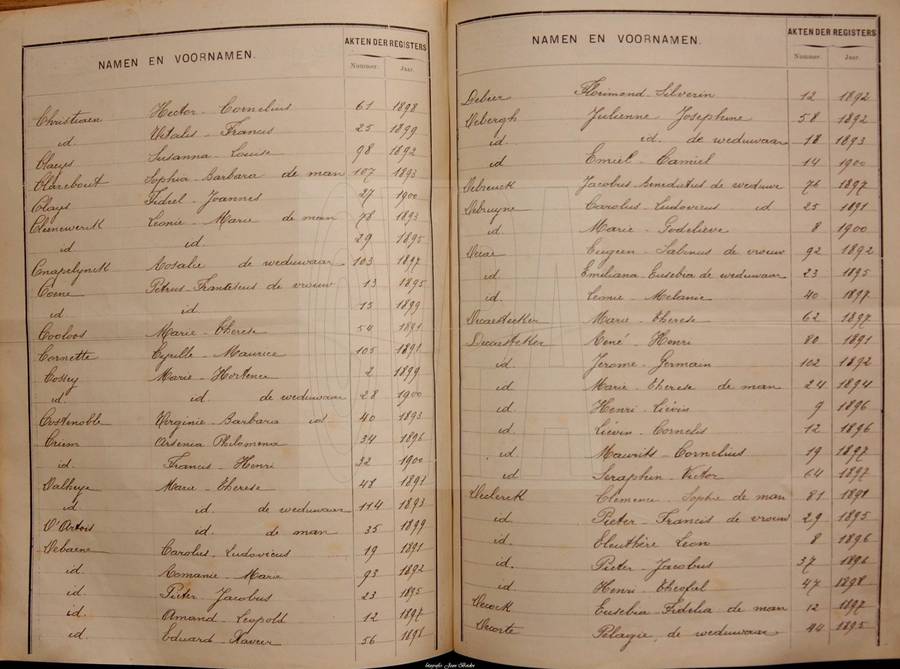 NAMEN EN VOORNAMEN. AKTEN DER REGISTERS
Nummer. Jaar.
Christiaen Hector - Cornelius 61 1898
id. Vitalis - Francis 25 1899
Claeys Susanna - Louise 98 1892
Clarebout Sophia - Barbara de man 107 1893
Clays Fideel - Joannes 27 1900
Cleenewerck Leonie - Marie de man 78 1893
id id 29 1895
Cnapelynck Rosalie de weduwaar 103 1897
Coene Petrus - Franciscus de vrouw 13 1895
id id 15 1899
Cooloos Marie - Therese 54 1891
Cornette Cyrille - Maurice 105 1891
Cossey Marie - Hortence 2 1899
id. id de weduwaar 28 1900
Costenoble Virginie - Barbara id 40 1893
Crum Arsenia Philomena 34 1896
id. Francis - Henri 32 1900
Dalheye Marie - Therese 48 1891
id id de weduwaar 114 1893
D'Artois id. de man 35 1899
Debaene Carolus - Ludovicus 19 1891
id. Romanie - Marie 93 1892
id. Pieter Jacobus 23 1895
id. Amand - Leopold 12 1897
id. Eduard Xavier 56 1898
NAMEN EN VOORNAMEN. AKTEN DER REGISTERS
Nummer. Jaar.
Debeer Florimond - Silverin 12 1892
Debergh Julienne - Josephine 58 1892
id id. de weduwaar 18 1893
id Emiel - Camiel 14 1900
Debreuck Jacobus - Benedictus de weduwe 76 1897
Debruyne Carolus - Ludovicus id 25 1891
id. Marie - Godelieve 8 1900
Decae Eugeen - Sabinus de vrouw 92 1892
id. Emiliana Eusebia de weduwaar 23 1895
id. Leonie - Melanie 40 1897
Decaestecker Marie - Therese 62 1897
Decaestecker René - Henri 80 1891
id. Jerome - Germain 102 1892
id Marie - Therese de man 24 1894
id. Henri - Liévin 9 1896
id. Liévin - Cornelis 12 1896
id. Maurits - Cornelius 19 1897
id Seraphin Victor 64 1897
Declerck Clemence - Sophie de man 81 1891
id. Pieter - Francis de vrouw 29 1895
id. Eleuthère Leon 8 1896
id. Pieter - Jacobus 37 1896
id Henri - Theofiel 47 1898
Decock Eusebia - Fidelia de man 12 1897
Decorte Pelagie, de weduwaar 44 1895